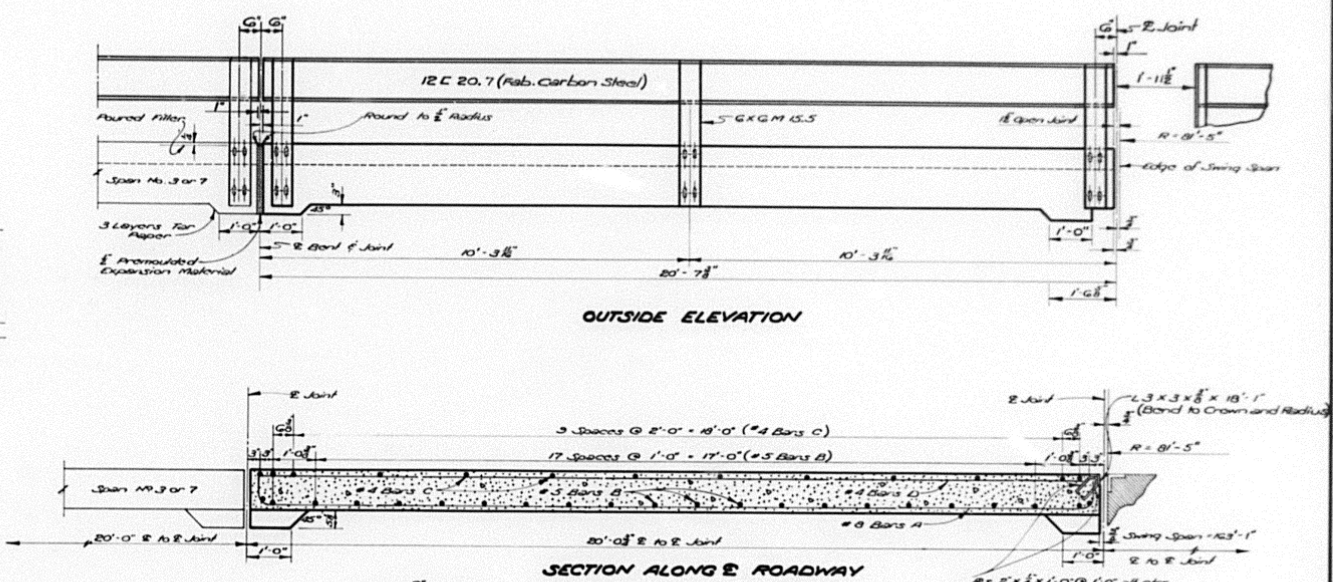 6" 6"
6" ℄ Joint
1"
12 C 20.7 (Fab. Carbon Steel)
1'-11½"
1" 1"
Poured Filler
Round to ½" Radius
6 x 6 M 15.5
Open Joint
R = 81'-5"
Edge of Swing Span
Span No. 3 or 7
3"
45°
3 Layers Tar
Paper
1'-0" 1'-0"
1'-0"
℄ Bent & Joint
½" Premoulded
Expansion Material
10'-3 11/16" 10'-3 11/16"
20'-7⅜"
OUTSIDE ELEVATION
℄ Joint
℄ Joint
L 3 x 3 x ⅜" x 18'-1"
(Bend to Crown and Radius)
9 Spaces @ 2'-0" = 18'-0" (#4 Bars C)
R = 81'-5"
17 Spaces @ 1'-0" = 17'-0" (#5 Bars B)
3" 3"
3" 3"
Span No 3 or 7
#4 Bars C
#5 Bars B
#4 Bars D
45°
#8 Bars A
20'-0" ℄ to ℄ Joint
℄ to ℄ Joint
Swing Span = 163'-1"
℄ to ℄ Joint
1'-0"
1'-0"
SECTION ALONG ℄ ROADWAY